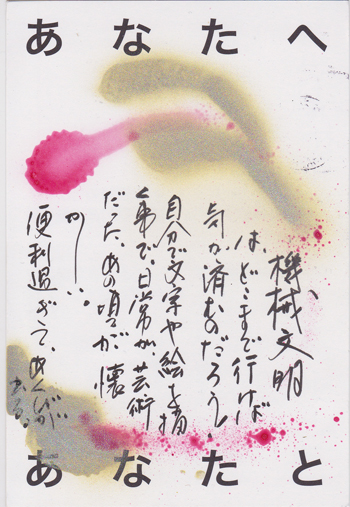 あなたへ
機械文明
は、どこまで行けば
気が済むのだろう。
自分で文字や絵を描
く事で、日常が、芸術
だった、あの頃が懐
かしい。
便利過ぎて、あくびが
出る。
あなたと